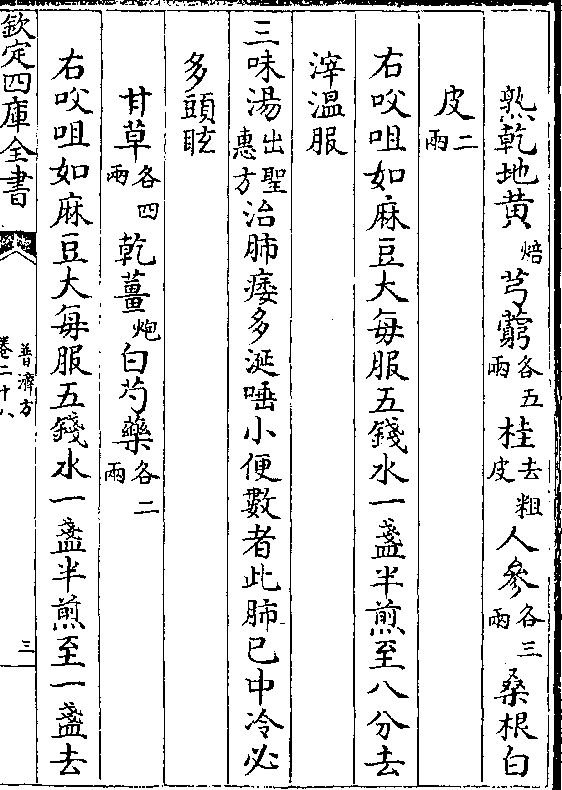 熟乾地黄焙芎藭各五兩桂去粗皮人參各三兩桑根白
皮二兩
右㕮咀如麻豆大每服五錢水一盞半煎至八分去
滓溫服
三味湯出聖惠方治肺痿多涎唾小便數者此肺已中冷必
多頭眩
甘草各四兩乾薑炮白芍藥各二兩
右㕮咀如麻豆大每服五錢水一盞半煎至一盞去
欽定四庫全書
普濟方
卷二十八
三